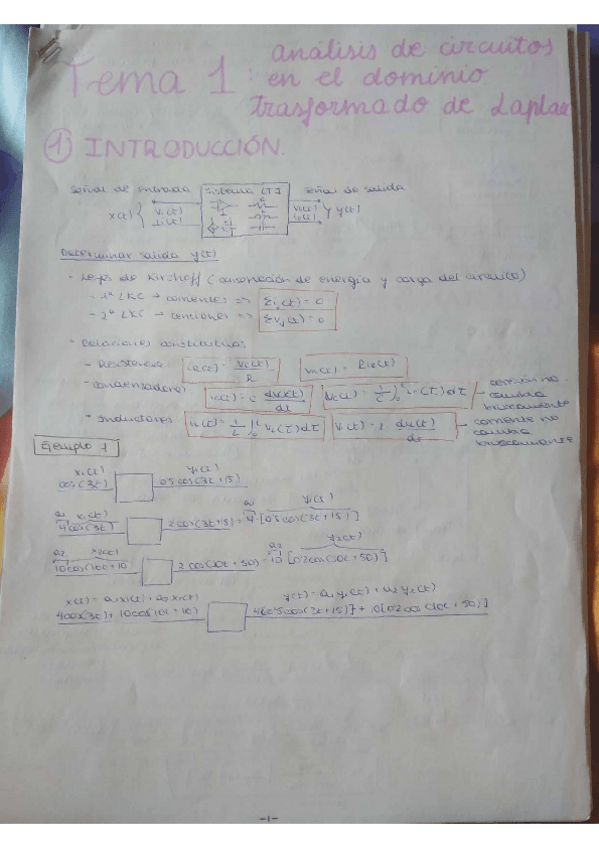 Tema 1: análisis de circuitos
en el dominio
Trasformado de Laplace
① INTRODUCCIÓN.
señal de entrada
Sistema LTI
señal de salida
x(t) { Vi(t) ii(t)
Vo(t) io(t) } y(t)
Determinar salida y(t)
- Leyes de Kirchoff (conservación de energía y carga del circuito)
- 1ª LKC → corrientes => Σij(t) = 0
- 2ª LKC → tensiones => Σvj(t) = 0
- Relaciones constitutivas
- Resistencia: iR(t) = VR(t)/R
VR(t) = R iR(t)
- Condensadores: ic(t) = C dvc(t)/dt
Vc(t) = 1/C ∫₀ᵗ ic(τ)dτ
→ tensión no cambia bruscamente
- Inductores iL(t) = 1/L ∫₀ᵗ VL(τ)dτ
VL(t) = L diL(t)/dt
→ corriente no cambia bruscamente
Ejemplo 1
x1(t) y1(t)
cos(3t) 0'5cos(3t+15)
a1 x1(t) a1 y1(t)
4cos(3t) 2cos(3t+15) = 4·[0'5cos(3t+15)]
a2 x2(t) a2 y2(t)
10cos(10t+10) 2cos(10t+50) = 10[0'2cos(10t+50)]
x(t) = a1x1(t) + a2x2(t) y(t) = a1y1(t) + a2y2(t)
4cos(3t) + 10cos(10t+10) 4[0'5cos(3t+15)] + 10[0'2cos(10t+50)]
-1-